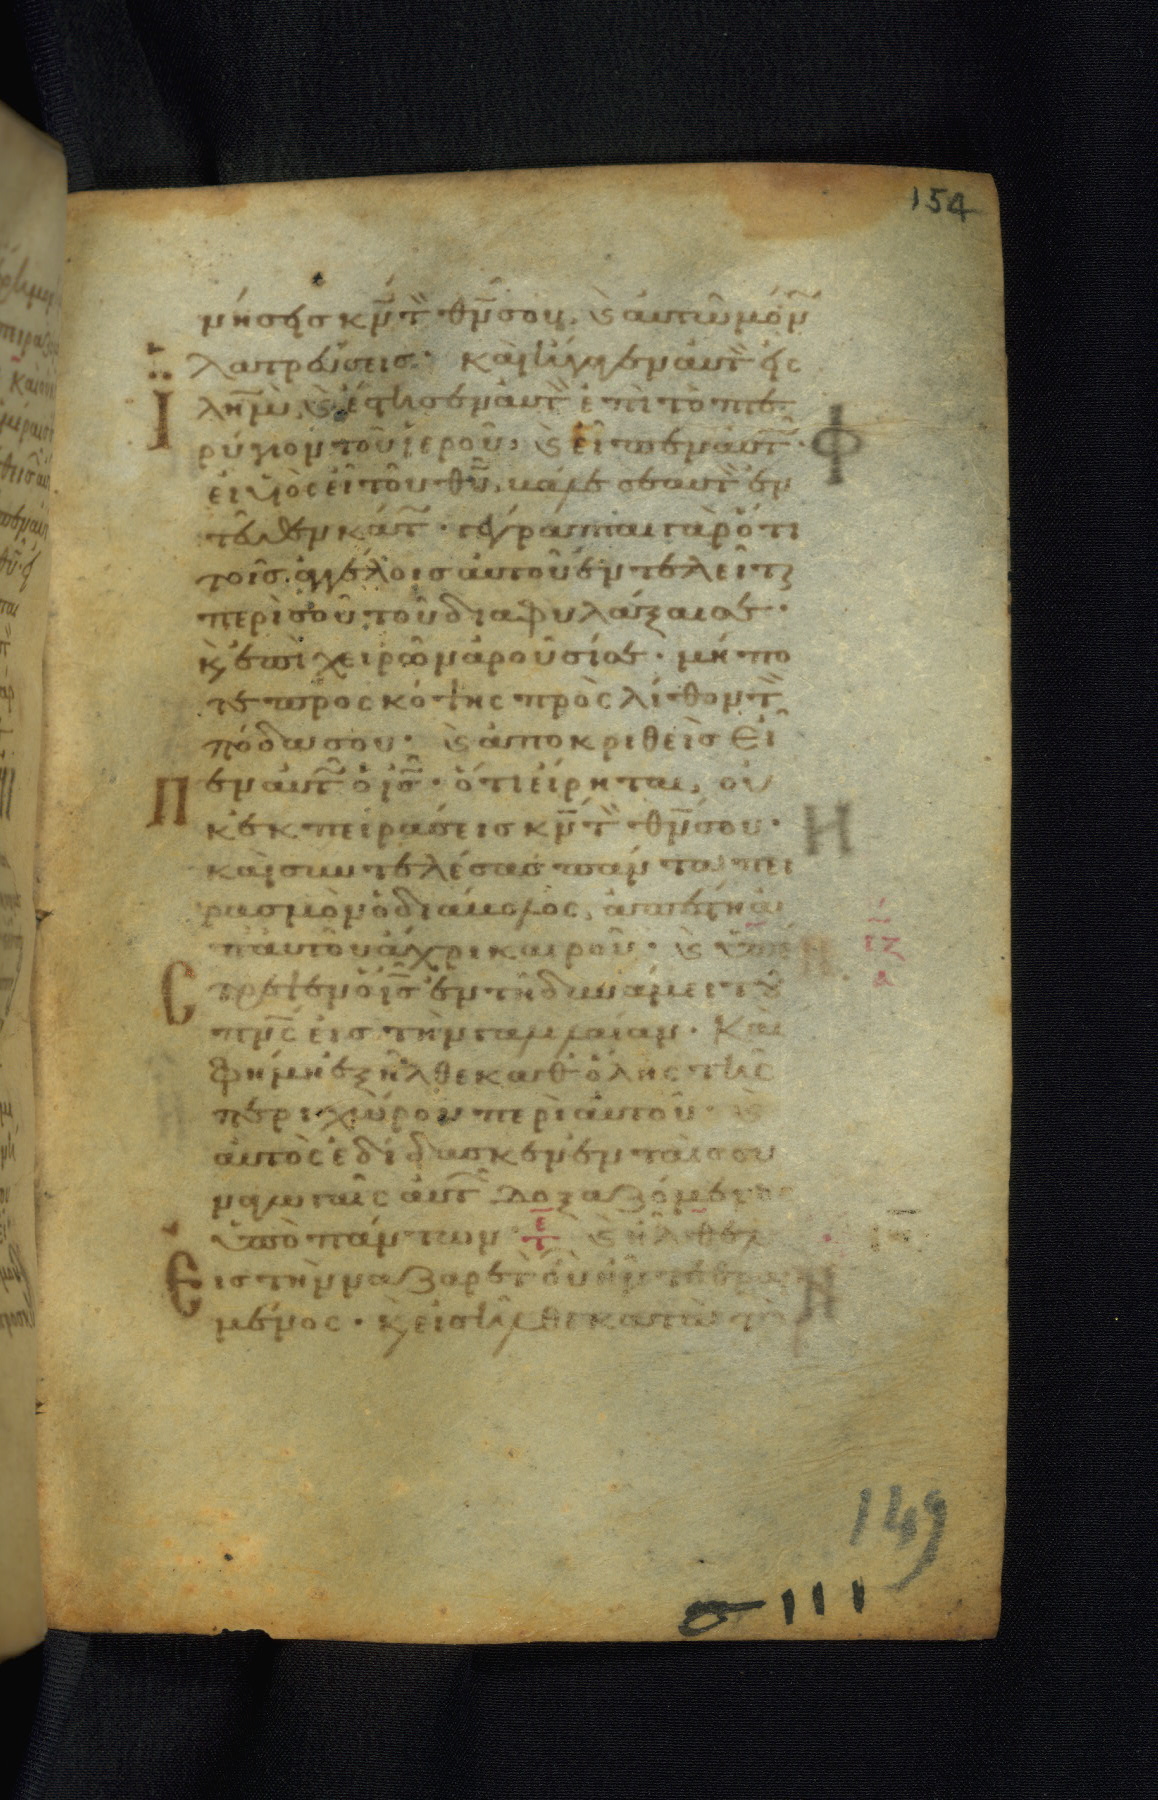 154
μήσεις κ̅ν̅ τὸν θ̅ν̅ σου, καὶ αὐτῶ μόν
λατρεύσεις· καὶ ἤγαγεν αὐτὸν εἰς
Ι λ̅η̅μ̅, καὶ ἔστησεν αὐτὸν ἐπὶ τὸ πτε
ρύγιον τοῦ ἱεροῦ, καὶ εἶπεν αὐτῶ· Φ
εἰ υἱὸς εἶ τοῦ θ̅υ̅, βάλε σεαυτὸν ἐν
τεῦθεν κάτω· γέγραπται γὰρ ὅτι
τοῖς ἀγγέλοις αὐτοῦ ἐντελεῖται
περὶ σοῦ τοῦ διαφυλάξαι σε·
κ̀ ἐπὶ χειρῶν ἀροῦσί σε· μήπο
τε προσκόψης πρὸς λίθον τὸν
πόδα σου· καὶ ἀποκριθεὶς εἶ
Π εν αὐτῶ ὁ ι̅ς̅· ὅτι εἴρηται, οὐ
κ ἐκπειράσεις κ̅ν̅ τὸν θ̅ν̅ σου· Η
καὶ συντελέσας πάντα πει
ρασμὸν ὁ διάβολος, ἀπέστη ἀ
π αὐτοῦ ἄχρι καιροῦ· καὶ ὑπέ
Σ τρεψεν ὁ ι̅ς̅ ἐν τῆ δυνάμει του
π̅ν̅ς̅ εἰς τὴν γαλλαίαν· Καὶ
φήμη ἐξῆλθε καθ ὅλης τῆς
περιχώρου περὶ αὐτοῦ· καὶ
αὐτὸς ἐδίδασκεν ἐν ταῖς συν
αγωγαῖς αὐτῶν δοξαζόμενος
ὑπὸ πάντων· καὶ ἦλθεν
Ε ις τὴν ναζαρὲτ οὗ ἦν τεθραμ
μένος· κ̀ εἰσῆλθε κατὰ τὸ
149
111